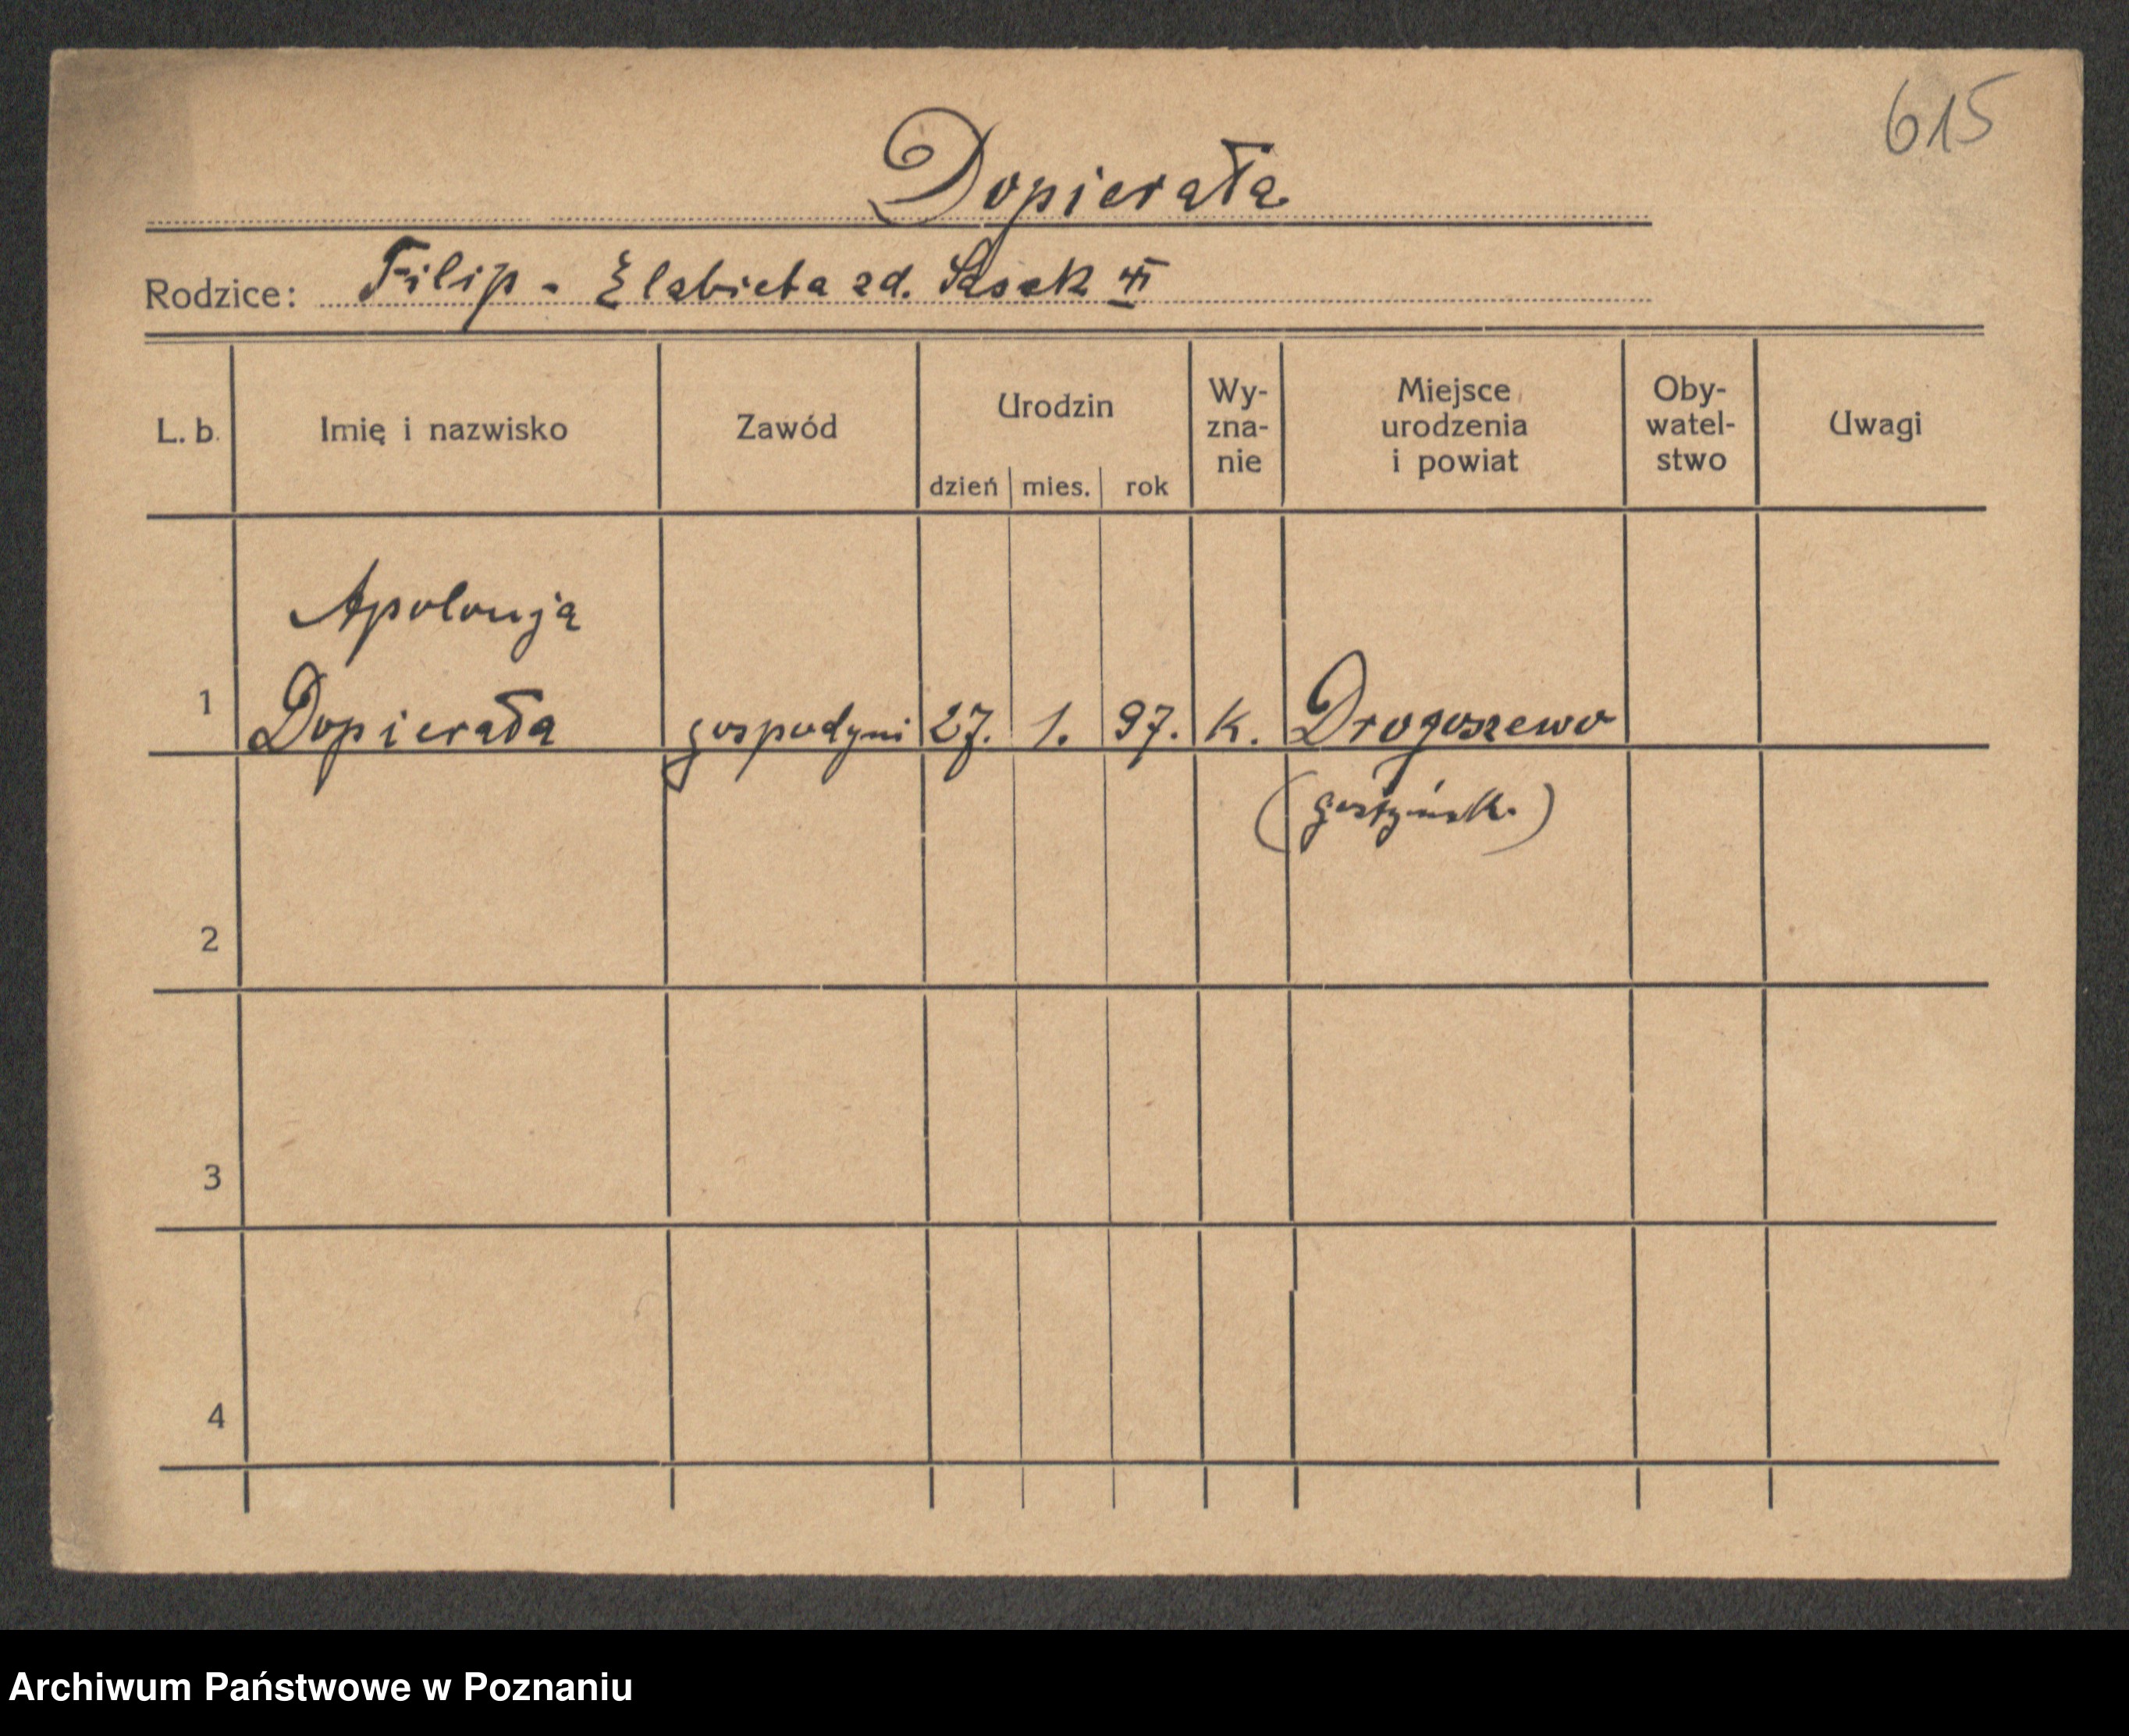 615
Dopierała
Rodzice: Filip - Elżbieta zd.
L. b. Imię i nazwisko Zawód Urodzin dzień mies. rok Wy-zna-nie Miejsce urodzenia i powiat Oby-watel-stwo Uwagi
Apolonja
1 Dopierała gospodyni 27. 1. 97. K. Drogoszewo
(gostyńsk.)
2
3
4
Archiwum Państwowe w Poznaniu